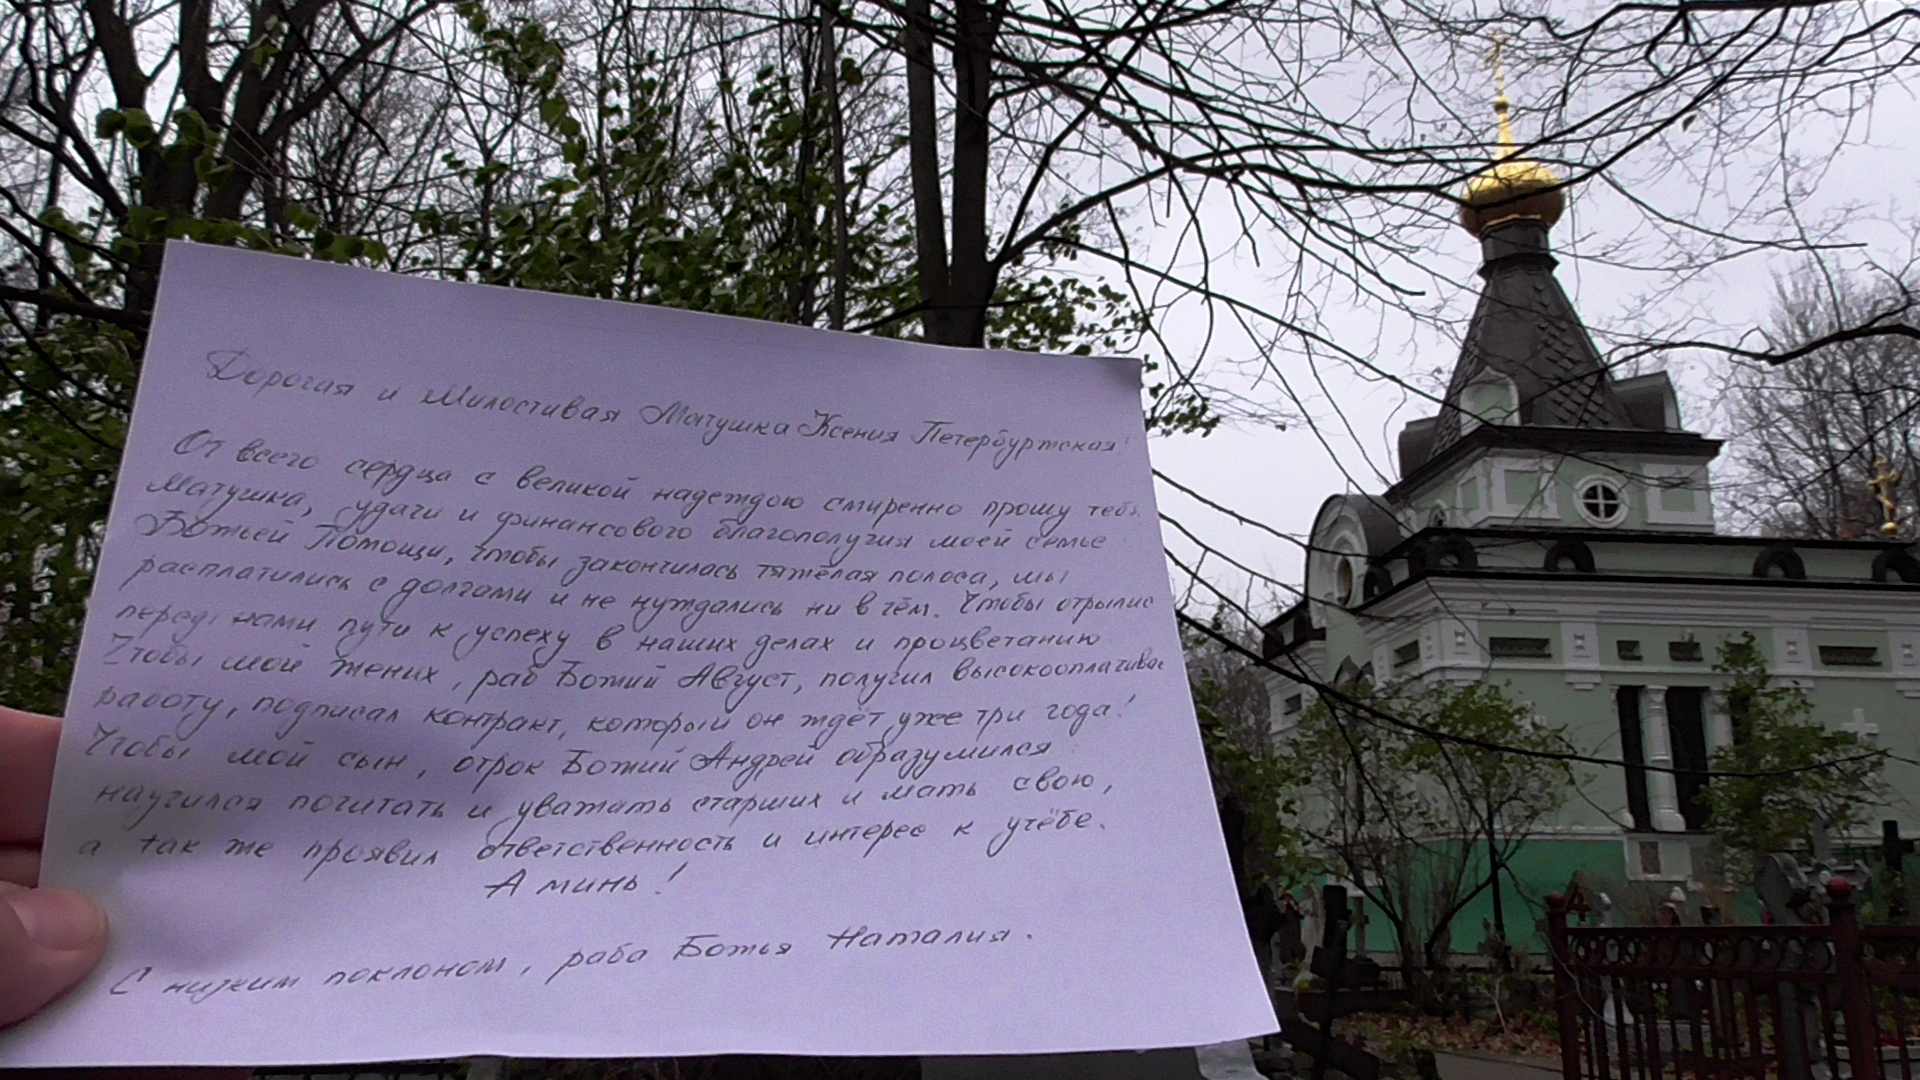 Дорогая и Милостивая Матушка Ксения Петербуртская!
От всего сердца с великой надеждою смиренно прошу тебя
Матушка, удачи и финансового благополучия моей семье
Божьей Помощи, чтобы закончилась тяжёлая полоса, мы
расплатились с долгами и не нуждались ни в чём. Чтобы отрылись
перед нами пути к успеху в наших делах и процветанию
Чтобы мой жених, раб Божий Август, получил высокооплачивае
работу, подписал контракт, который он ждёт уже три года!
Чтобы мой сын, отрок Божий Андрей образумился
научился почитать и уважать старших и мать свою,
а так же проявил ответственность и интерес к учёбе.
Аминь!
С низким поклоном, раба Божья Наталия.